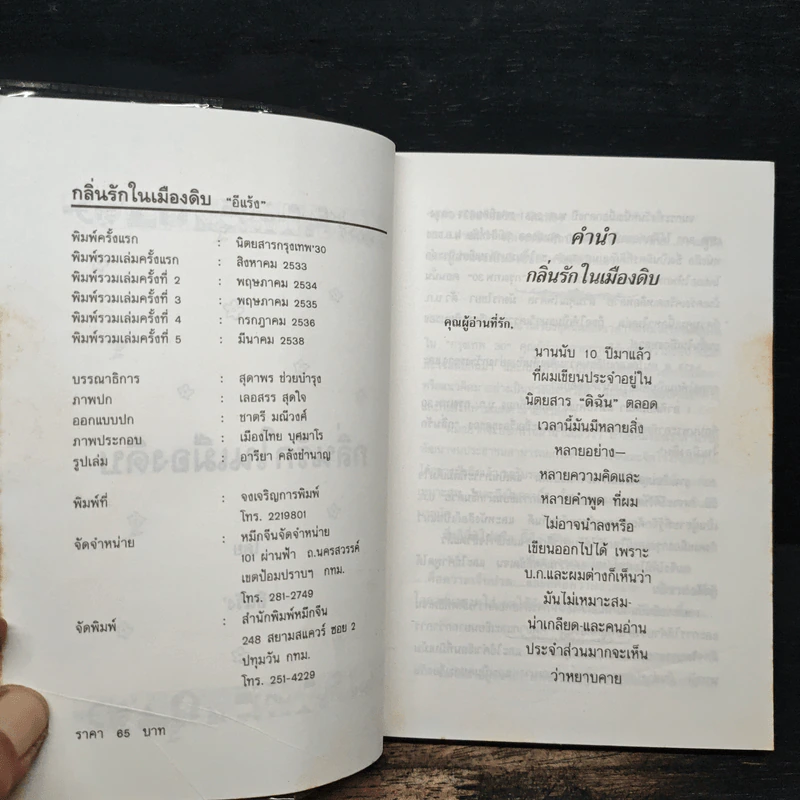 กลิ่นรักในเมืองดิบ "อีแร้ง"
พิมพ์ครั้งแรก : นิตยสารกรุงเทพ'30
พิมพ์รวมเล่มครั้งแรก : สิงหาคม 2533
พิมพ์รวมเล่มครั้งที่ 2 : พฤษภาคม 2534
พิมพ์รวมเล่มครั้งที่ 3 : พฤษภาคม 2535
พิมพ์รวมเล่มครั้งที่ 4 : กรกฎาคม 2536
พิมพ์รวมเล่มครั้งที่ 5 : มีนาคม 2538
บรรณาธิการ : สุดาพร ช่วยบำรุง
ภาพปก : เลอสรร สุดใจ
ออกแบบปก : ชาตรี มณีวงศ์
ภาพประกอบ : เมืองไทย บุศมาโร
รูปเล่ม : อารียา คลังชำนาญ
พิมพ์ที่ : จงเจริญการพิมพ์
โทร. 2219801
จัดจำหน่าย : หมึกจีนจัดจำหน่าย
101 ผ่านฟ้า ถ.นครสวรรค์
เขตป้อมปราบฯ กทม.
โทร. 281-2749
จัดพิมพ์ : สำนักพิมพ์หมึกจีน
248 สยามสแควร์ ซอย 2
ปทุมวัน กทม.
โทร. 251-4229
ราคา 65 บาท
คำนำ
กลิ่นรักในเมืองดิบ
คุณผู้อ่านที่รัก.
นานนับ 10 ปีมาแล้ว
ที่ผมเขียนประจำอยู่ใน
นิตยสาร "ดิฉัน" ตลอด
เวลานี้มันมีหลายสิ่ง
หลายอย่าง—
หลายความคิดและ
หลายคำพูด ที่ผม
ไม่อาจนำลงหรือ
เขียนออกไปได้ เพราะ
บ.ก.และผมต่างก็เห็นว่า
มันไม่เหมาะสม-
น่าเกลียด-และคนอ่าน
ประจำส่วนมากจะเห็น
ว่าหยาบคาย